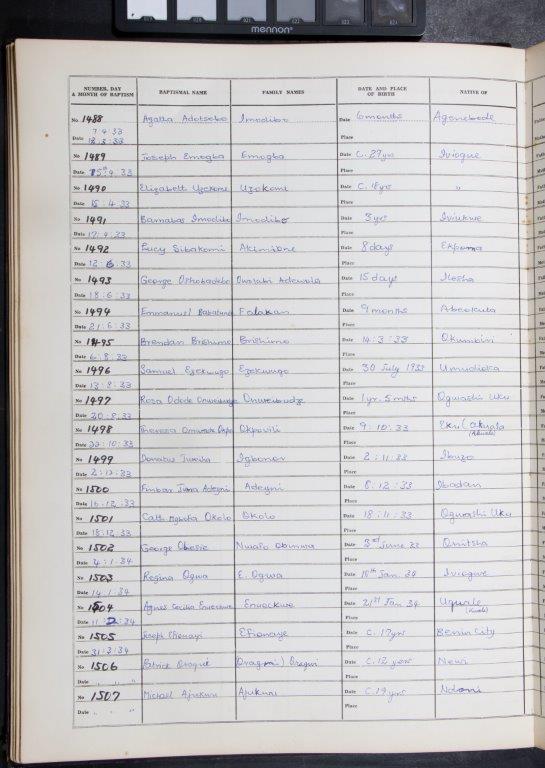 mennon
NUMBER, DAY & MONTH OF BAPTISM BAPTISMAL NAME FAMILY NAMES DATE AND PLACE OF BIRTH NATIVE OF
No 1488 Agatha Imodibo Date 6 months Agenebode
7.4.33
Date Place
No 1489 Joseph Emogba Emogba Date C. 27 yrs Iviogue
Date 15th.4.33 Place
No 1490 Elizabeth Uzokomi Uzokomi Date C. 18 yrs "
Date 15.4.33 Place
No 1491 Barnabas Imodibo Imodibo Date 3 yrs Iviukwe
Date 17.4.33 Place
No 1492 Lucy Sibakomi Akimione Date 8 days Ekpoma
Date 12:6:33 Place
No 1493 George Owolabi Adewola Date 15 days Ilesha
Date 18:6:33 Place
No 1494 Emmanuel Babatunde Falakan Date 9 months Abeokuta
Date 21:6:33 Place
No 1495 Brendan Brishimo Brishimo Date 14:3:33
Date 6:8:33 Place
No 1496 Samuel Ezekwugo Ezekwugo Date 30 July 1933 Umudioka
Date 13:8:33 Place
No 1497 Rosa Odode Date 1 yr. 5 mths Ogwashi Uku
Date 20:8.33 Place
No 1498 Theresa Okpovili Date 9:10:33 Eku (Akuala
Date 22:10:33 Place
No 1499 Donatus Igbonor Date 2:11:33 Ibuzo
Date 2:12:33 Place
No 1500 Finbar Adeyni Adeyni Date 8:12:33 Ibadan
Date 16.12.33 Place
No 1501 Cath. Mgbafo Okolo Okolo Date 18:11:33 Ogwashi Uku
Date 18:12.33 Place
No 1502 George Obasie Nwafo Obinwa Date 3rd June 33 Onitsha
Date 4:1.34 Place
No 1503 Regina Ogwa E. Ogwa Date Jan. 34 Iviogwe
Date 14.1.34 Place
No 1504 Agnes Cecilia Enueokwe Enueokwe Date 21st Jan 34 Ugwale
Date 11:2:34 Place
No 1505 Joseph Date C. 17 yrs Benin City
Date 31:3:34 Place
No 1506 Patrick Oragwi (Oragwi) Oragwi Date C. 12 years Newi
Date " " " Place
No 1507 Michael Ajukuru Ajukuru Date C. 19 yrs Ndoni
Date " " Place